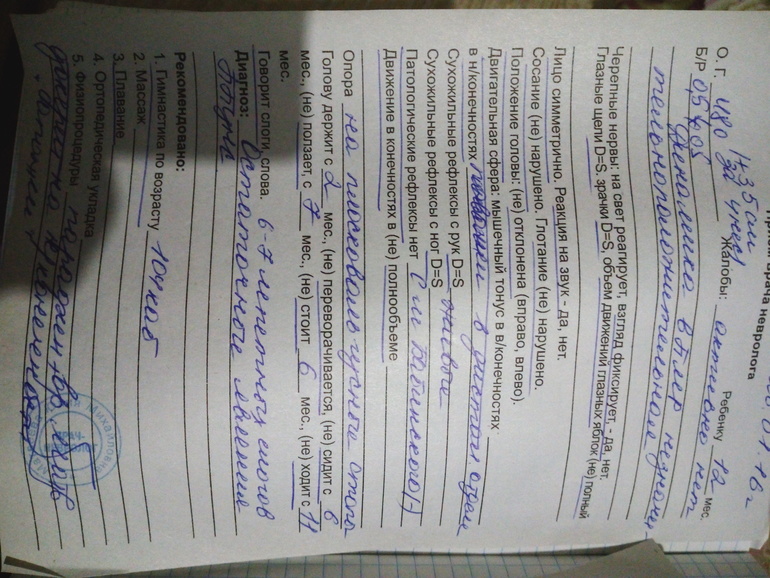 врача невролога
О. Г. 48 см Ребенку 12 мес.
Б/Р Жалобы: активно нет
в
Черепные нервы: на свет реагирует, взгляд фиксирует, - да, нет.
Глазные щели D=S, зрачки D=S, объем движений глазных яблок (не) полный
Лицо симметрично. Реакция на звук - да, нет.
Сосание (не) нарушено. Глотание (не) нарушено.
Положение головы: (не) отклонена (вправо, влево).
Двигательная сфера: мышечный тонус в в/конечностях
в н/конечностях повышен в дистал. отделе
Сухожильные рефлексы с рук D=S живые
Сухожильные рефлексы с ног D=S
Патологические рефлексы нет С-м Бабинского (-)
Движение в конечностях в (не) полнообъеме
Опора на плосковальгусные стопы
Голову держит с 2 мес., (не) переворачивается, (не) сидит с 6
мес., (не) ползает, с 7 мес., (не) стоит 6 мес., (не) ходит с 11
мес.
Говорит слоги, слова. 6-7 лепетных слогов
Диагноз: Остаточные явления
Рекомендовано:
1. Гимнастика по возрасту
2. Массаж 10 ч
3. Плавание
4. Ортопедическая укладка
5. Физиопроцедуры